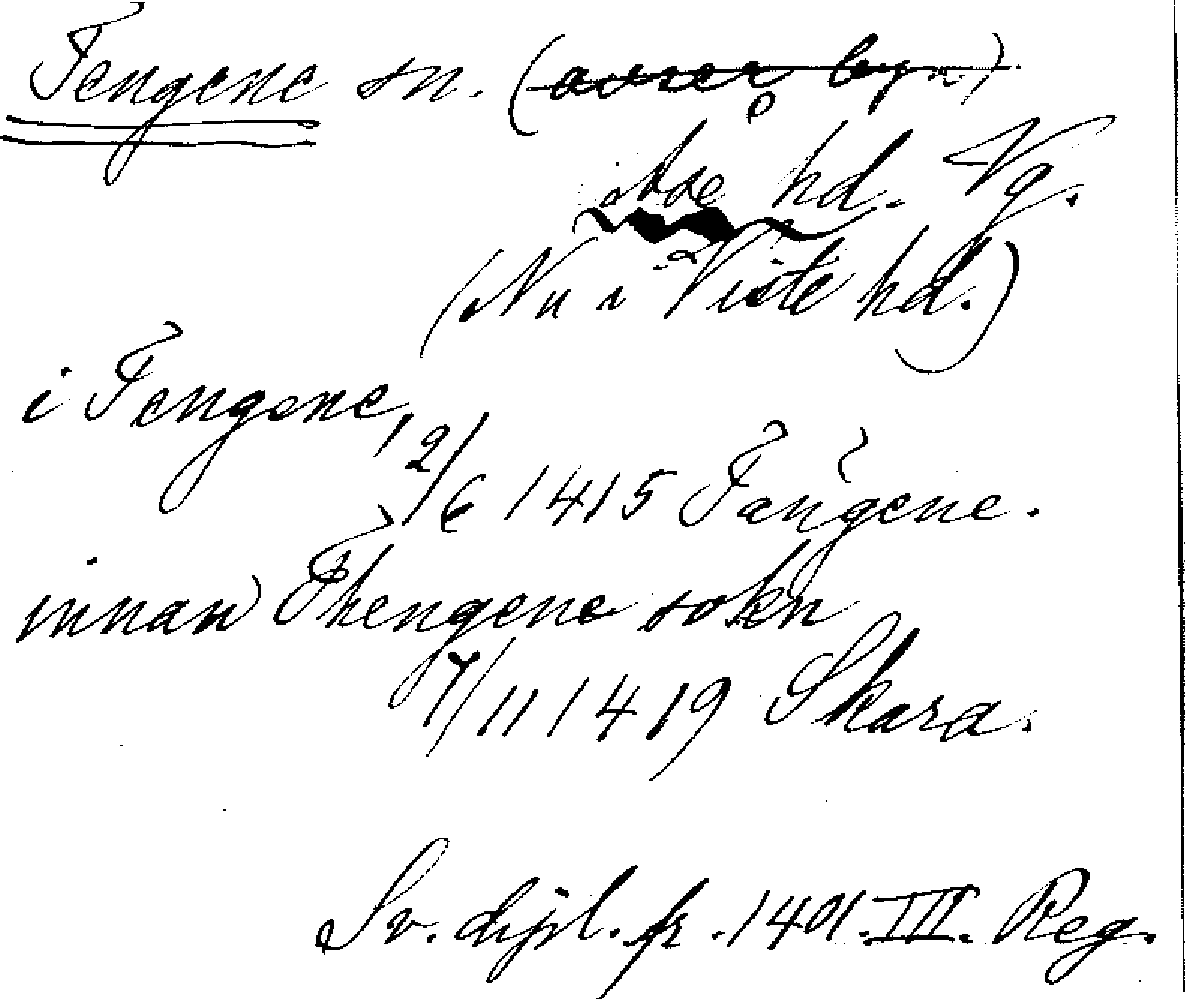 Tengene sn. (avser byn)
Åse hd. Vg.
(Nu i Viste hd.)
i Tengene,
12/6 1415 Tængene.
innan Thengene sokn
7/11 1419 Skara.
Sv. dipl. fr. 1401. III. Reg.